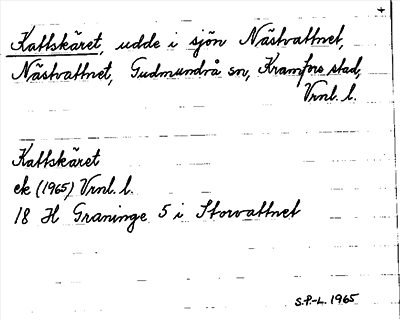 +
Kattskäret, udde i sjön Nästvattnet,
Nästvattnet, Gudmundrå sn, Kramfors stad,
Vrnl. l.
Kattskäret
ek (1965) Vrnl. l.
18 H Graninge 5 i Storvattnet
S.P.-L. 1965